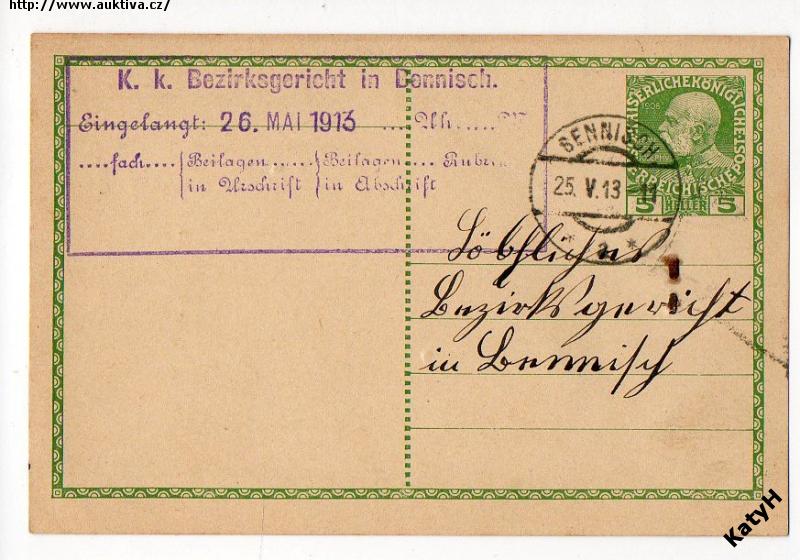 http://www.auktiva.cz/
K. k. Bezirksgericht in Bennisch.
Eingelangt: 26. MAI 1913 .... Uh......
....fach.... Beilagen ...... Beilagen ... Rubr
in Urschrift in Abschrift
KAISERLICHEKÖNIGLICHEÖSTERREICHISCHEPOST
1908
5 HELLER 5
BENNISCH
25. V. 13 11
* a *
Löbliches
Bezirksgericht
in Bennisch
KatyH